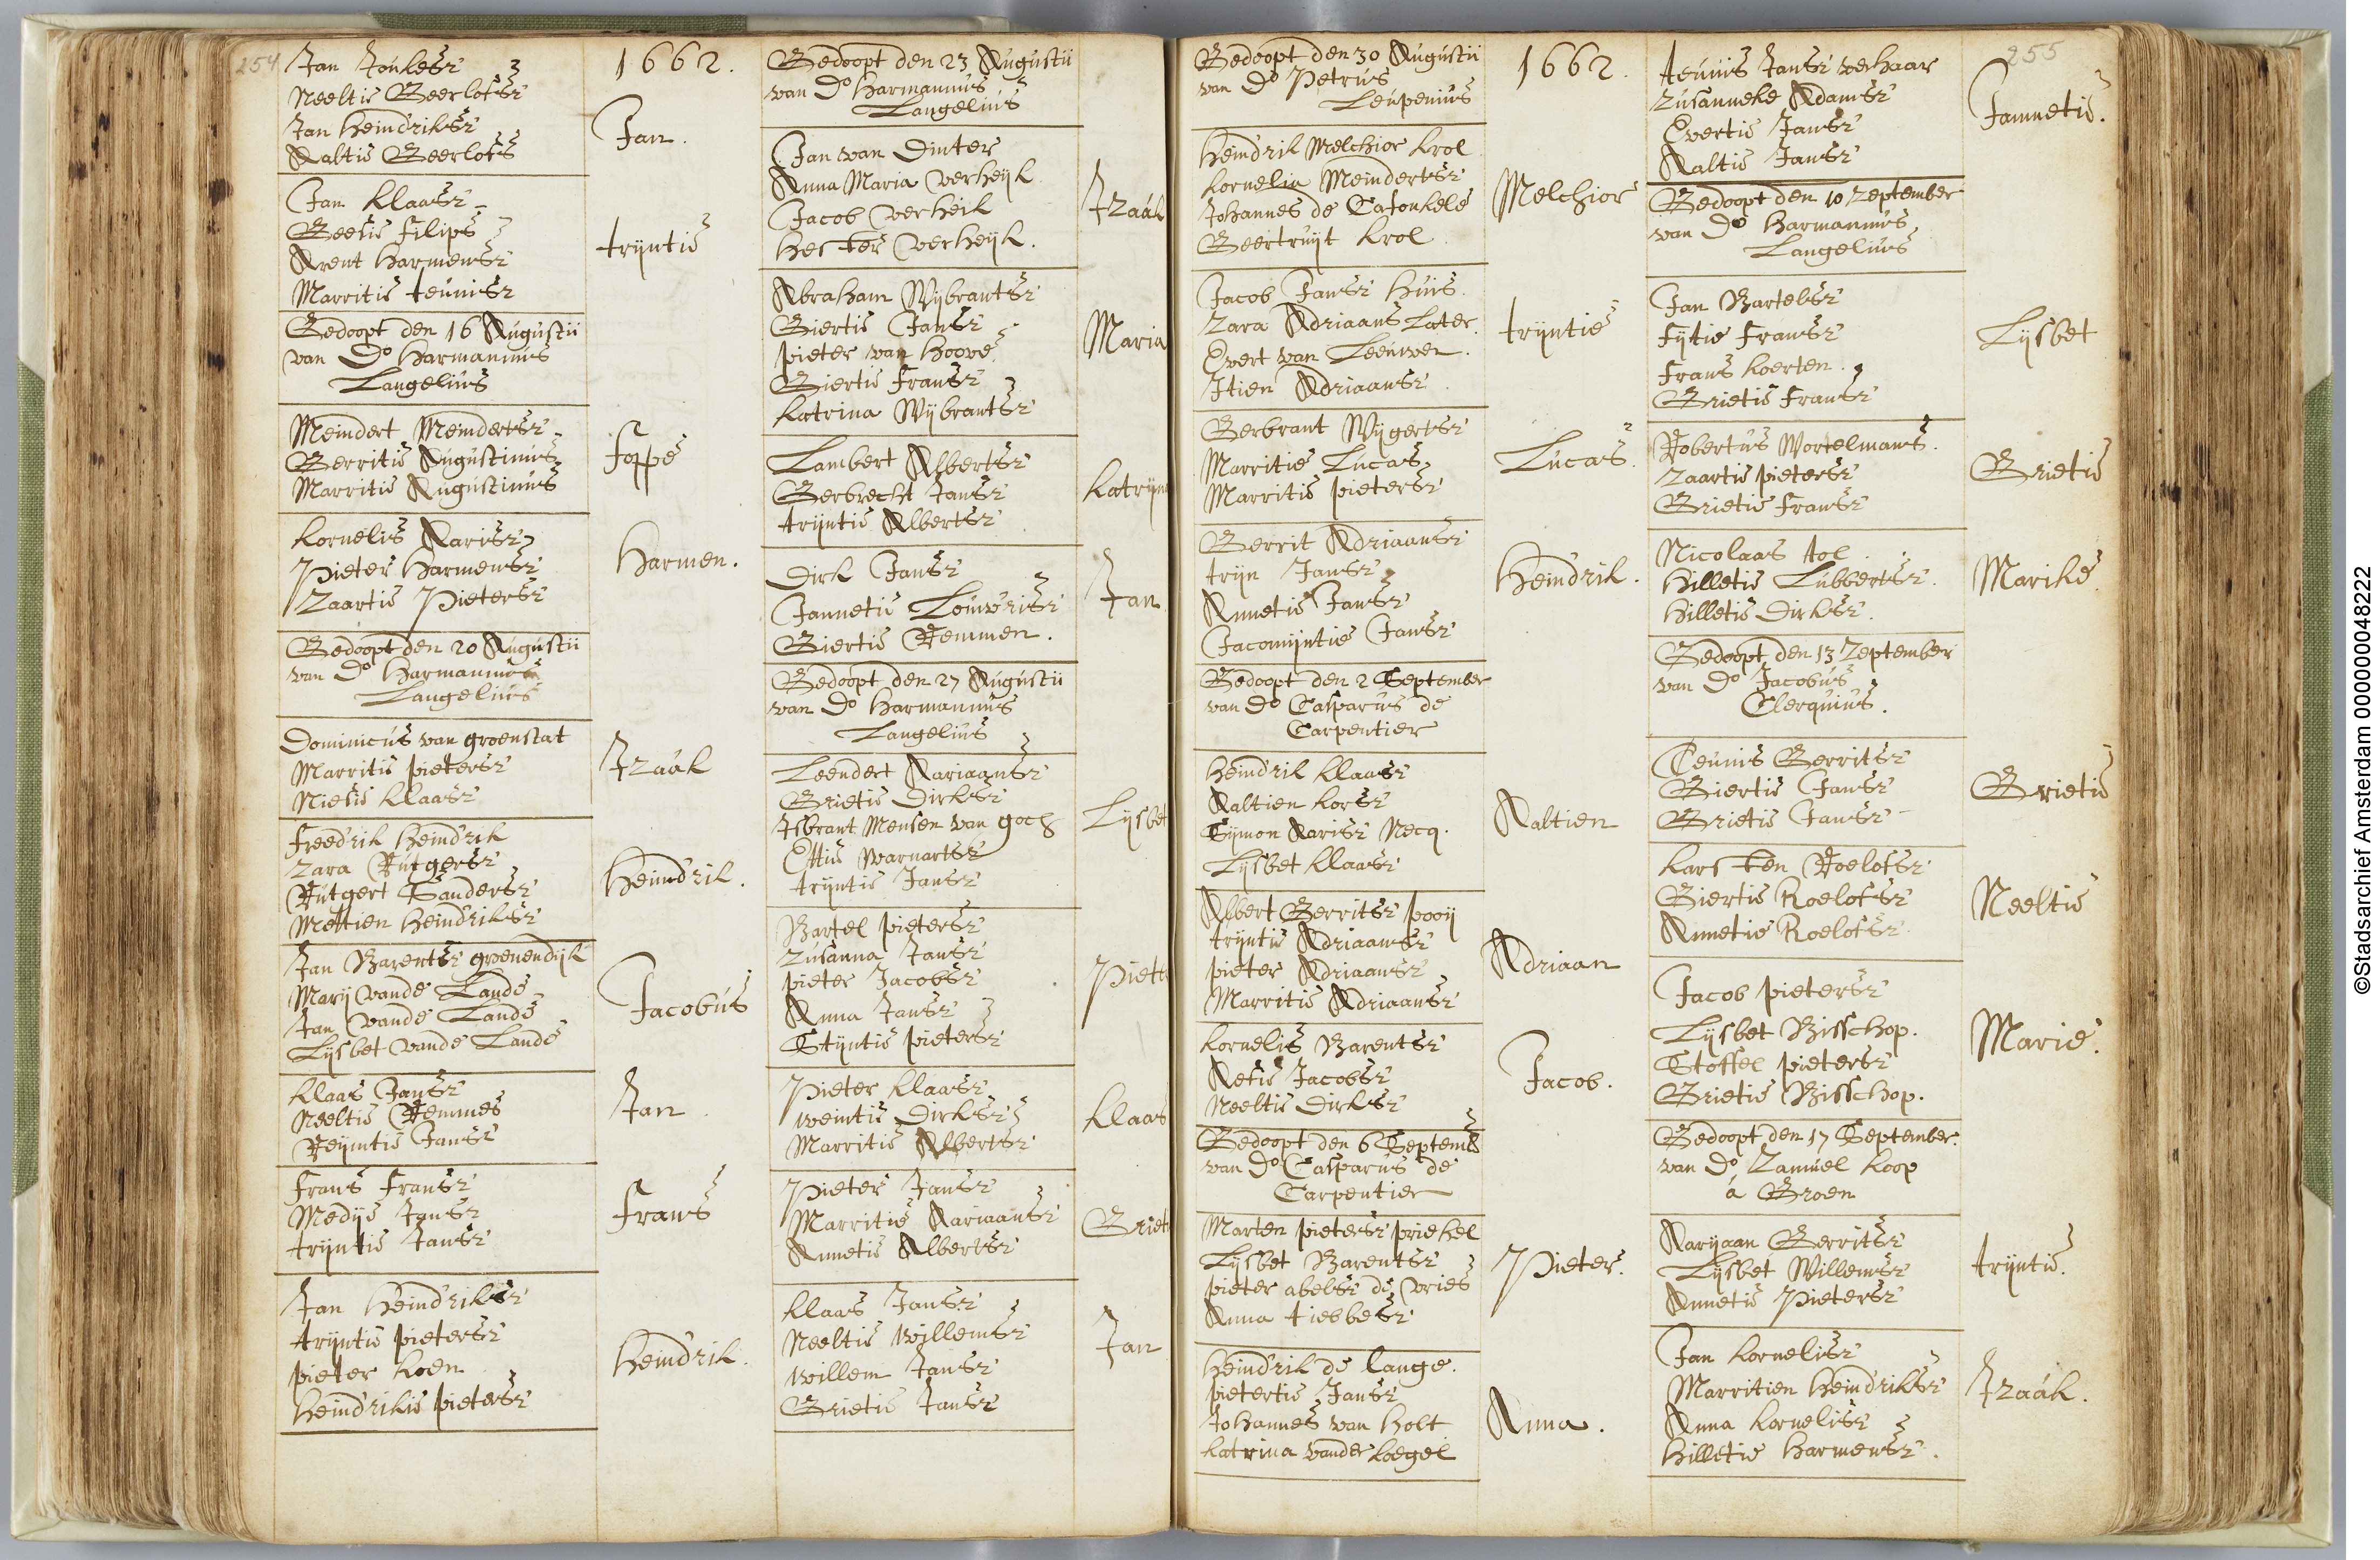 254
Jan Jonkesz
Neeltie Geerlofsz
Jan Heindriksz
Aaltie Geerlofs
Jan.
Jan Klaasz
Geesie filips
Arent Harmensz
Marritie teunisz
trijntie
Gedoopt den 16 Augustii
van Do Harmannus
Langelius
Meindert Meindertsz
Gerritie Augustinus
Marritie Augustinus
foppe
Kornelis Aarisz
Pieter Harmensz
Zaartie Pietersz
Harmen.
Gedoopt den 20 Augustii
van Do Harmannus
Langelius
Dominicus van groenstat
Marritie pietersz
Niesie Klaasz
Izaák
freedrik Heindrik
Zara Rutgersz
Rutgert Sandersz
Mettien Heindriksz
Heindrik.
Jan Barentsz groenendijk
Marij vande Lande
Jan vande Lande
Lijsbet vande Lande
Jacobus
Klaas Jansz
Neeltie Remmes
Reijntie Jansz
Jan
frans fransz
Medije Jansz
trijntie Jansz
frans
Jan Heindriksz
trijntie pietersz
pieter Koen
Heindrikie pietersz
Heindrik.
1662.
Gedoopt den 23 Augustii
van Do Harmannus
Langelius
Jan van Dinter
Anna Maria Verheijk
Jacob Verheik
Hester Verheijk.
Izaák
Abraham Wijbrantsz
Giertie Jansz
pieter van Hoove
Giertie fransz
Katrina Wijbrantsz
Maria
Lambert Albertsz
Gerbrecht Jansz
trijntie Albertsz
Katrijn
Dirk Jansz
Jannetie Louwrisz
Giertie Remmen.
Jan
Gedoopt den 27 Augustii
van Do Harmannus
Langelius
Leendert Aariaansz
Grietie Dirksz
Isbrant Mensen van goch
Ettie Warnartsz
trijntie Jansz
Lijsbet
Bartel pietersz
Zusanna Jansz
pieter Jacobsz
Anna Jansz
Stijntie pietersz
Piete
Pieter Klaasz
weintie Dirksz
Marritie Albertsz
Klaas
Pieter Jansz
Marritie Aariaansz
Annetie Albertsz
Griet
Klaas Jansz
Neeltie Willemsz
Willem Jansz
Grietie Jansz
Jan
Gedoopt den 30 Augustii
van Do Petrus
Leupenius
Heindrik Melchior Krol
Kornelia Meindertsz
Johannes de Casonkele
Geertruijt Krol
Melchior
Jacob Jansz Huis.
Zara Adriaans Later.
Evert van Leeuwen.
Itien Adriaansz
trijntie
Gerbrant Wijgertsz
Marritie Lucas
Marritie pietersz
Lucas.
Gerrit Adriaansz
trijn Jansz
Annetie Jansz
Jacomijntie Jansz
Heindrik.
Gedoopt den 2 September
van Do Casparus de
Carpentier
Heindrik Klaasz
Aaltien Korsz
Sijmon Aarisz Necq.
Lijsbet Klaasz
Aaltien
Albert Gerritsz pooij
trijntie Adriaansz
pieter Adriaansz
Marritie Adriaansz
Adriaan
Kornelis Barentsz
Aetie Jacobsz
Neeltie Dirksz
Jacob.
Gedoopt den 6 Septemb
van Do Casparus de
Carpentier
Marten pietersz priekel
Lijsbet Barentsz
pieter abelsz de Vries
Anna tiebbesz
Pieter.
Heindrik de lange.
pietertie Jansz
Johannes van Holt
Katrina vander Koegel
Anna.
1662.
255
teunis Jansz verhaar
Zusanneke Adamsz
Evertie Jansz
Aaltie Jansz
Jannetie.
Gedoopt den 10 Zeptember
van Do Harmannus
Langelius
Jan Bartelsz
fijtie fransz
frans Koerten.
Grietie fransz
Lijsbet
Robertus Wortelmans.
Zaartie pietersz
Grietie fransz
Grietie
Nicolaas tol.
Hilletie Lubbertsz.
Hilletie Dirksz.
Marike
Gedoopt den 13 Zeptember
van Do Jacobus
Clerquius.
Teunis Gerritsz
Giertie Jansz
Grietie Jansz
Grietie
Karsten Roelofsz
Giertie Roelofsz
Annetie Roelofsz
Neeltie
Jacob pietersz
Lijsbet Bisschop.
Stoffel pietersz
Grietie Bisschop.
Marie.
Gedoopt den 17 September.
van Do Zamuel Koop
á Groen
Aarijaan Gerritsz
Lijsbet Willemsz
Annetie Pietersz
trijntie.
Jan Kornelisz
Marritien Heindriksz
Anna Kornelisz
Hilletie Harmensz.
Izaák.
©Stadsarchief Amsterdam 000000048222